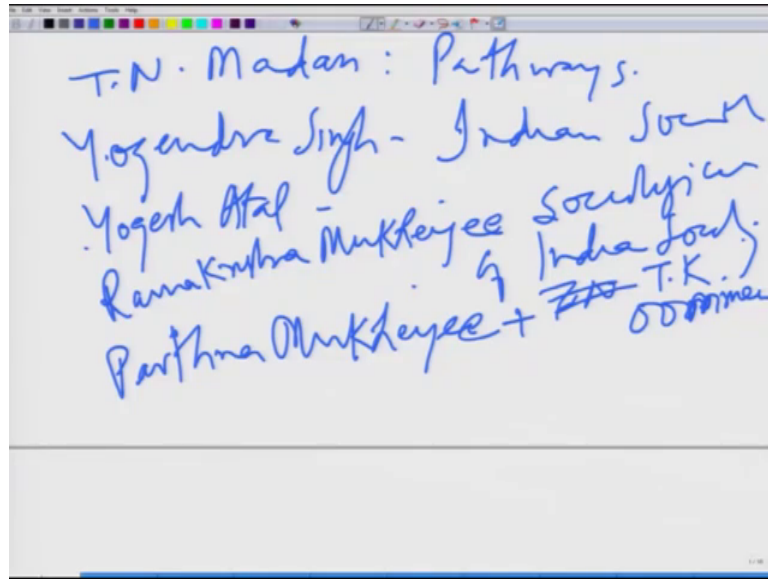 T.N. Madan: Pathways.
Yogendra Singh - Indian
Yogesh Atal -
Ramakrishna Mukherjee
of India
Partha Mukherjee + T.K.
Oommen